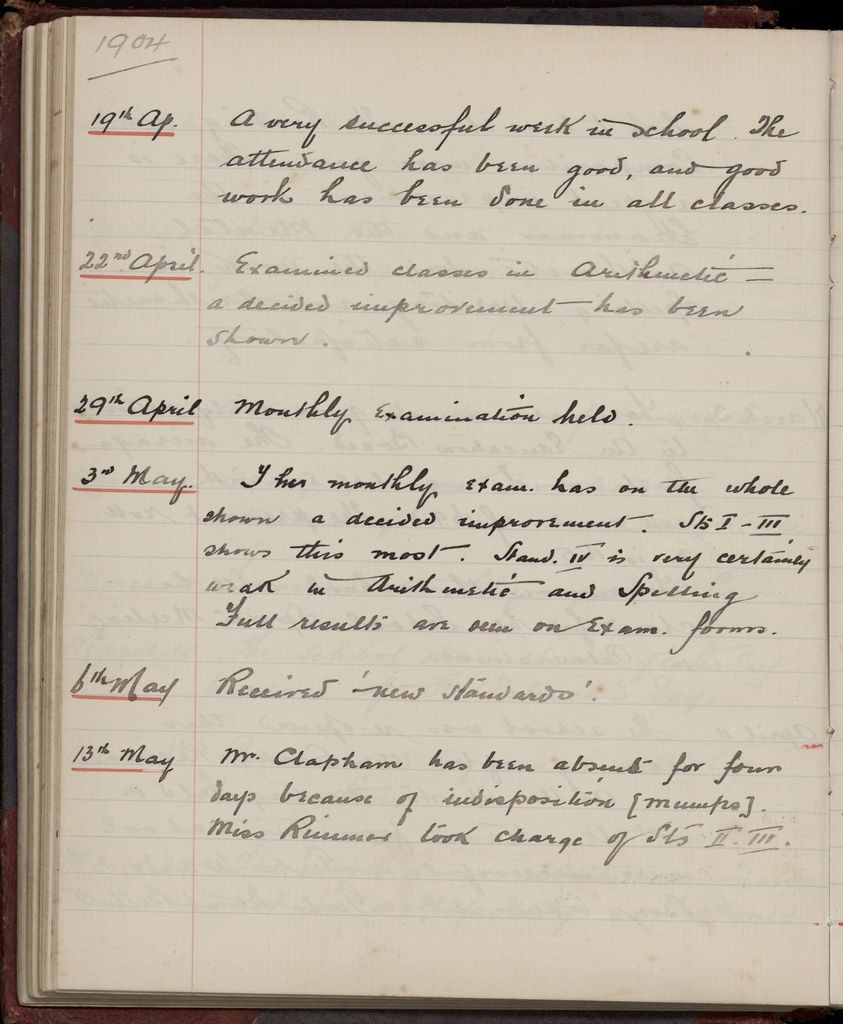 1904
19th Ap. A very successful week in school. The
attendance has been good, and good
work has been done in all classes.
22nd April. Examined classes in Arithmetic —
a decided improvement has been
shown.
29th April Monthly Examination held.
3rd May. The monthly exam. has on the whole
shown a decided improvement. Sts I - III
shows this most. Stand. IV is very certainly
weak in Arithmetic and Spelling
Full results are seen on Exam. forms.
6th May Received 'new standards'.
13th May Mr. Clapham has been absent for four
days because of indisposition [mumps].
Miss Rimmer took charge of Sts II - III.